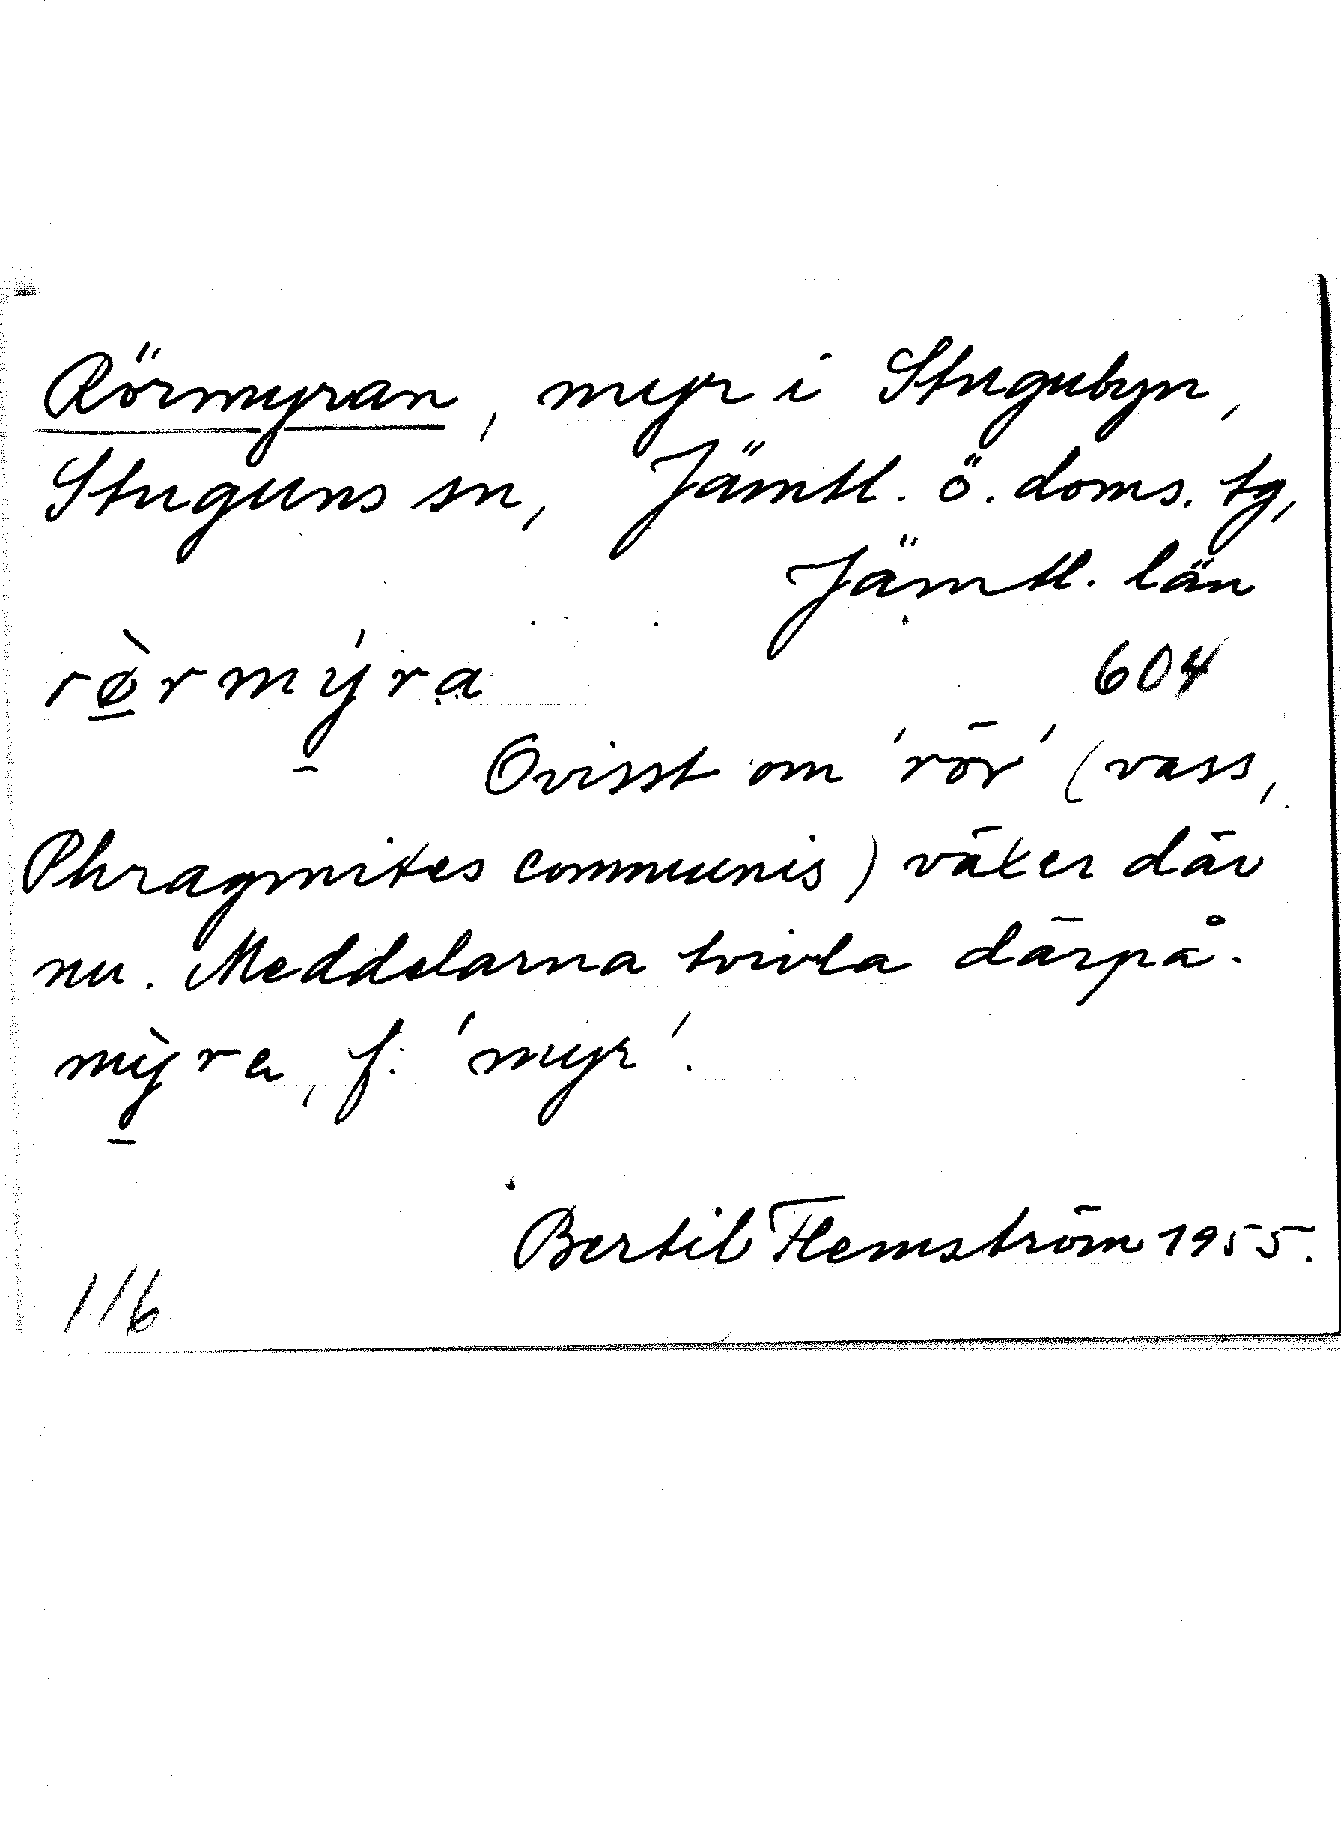 Rörmyran, myr i Stugubyn,
Stuguns sn, Jämtl. ö. doms. tg,
Jämtl. län
rø̀rmýra 604
Ovisst om 'rör' (vass,
Phragmites communis) växer där
nu. Meddelarna tvivla därpå.
mỳra, f. 'myr'.
Bertil Flemström 1955.
116